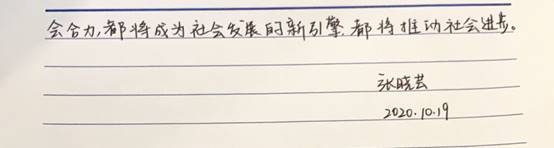 会合力,都将成为社会发展的新引擎.都将推动社会进步。
张晓芸
2020.10.19